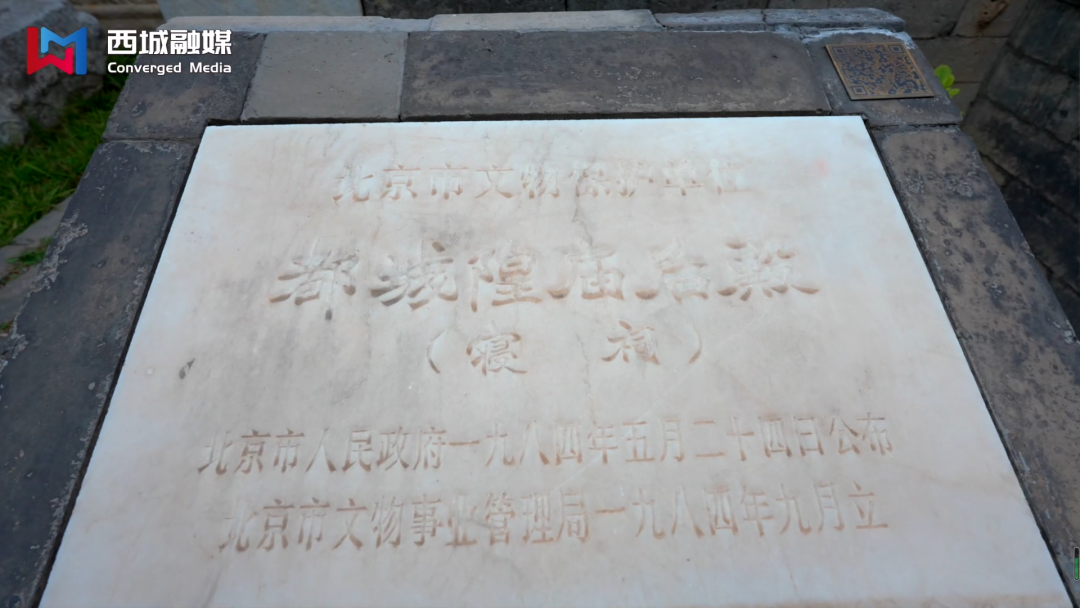 西城融媒
Converged Media
北京市文物保护单位
都城隍庙后殿
（寝祠）
北京市人民政府一九八四年五月二十四日公布
北京市文物事业管理局一九八四年九月立